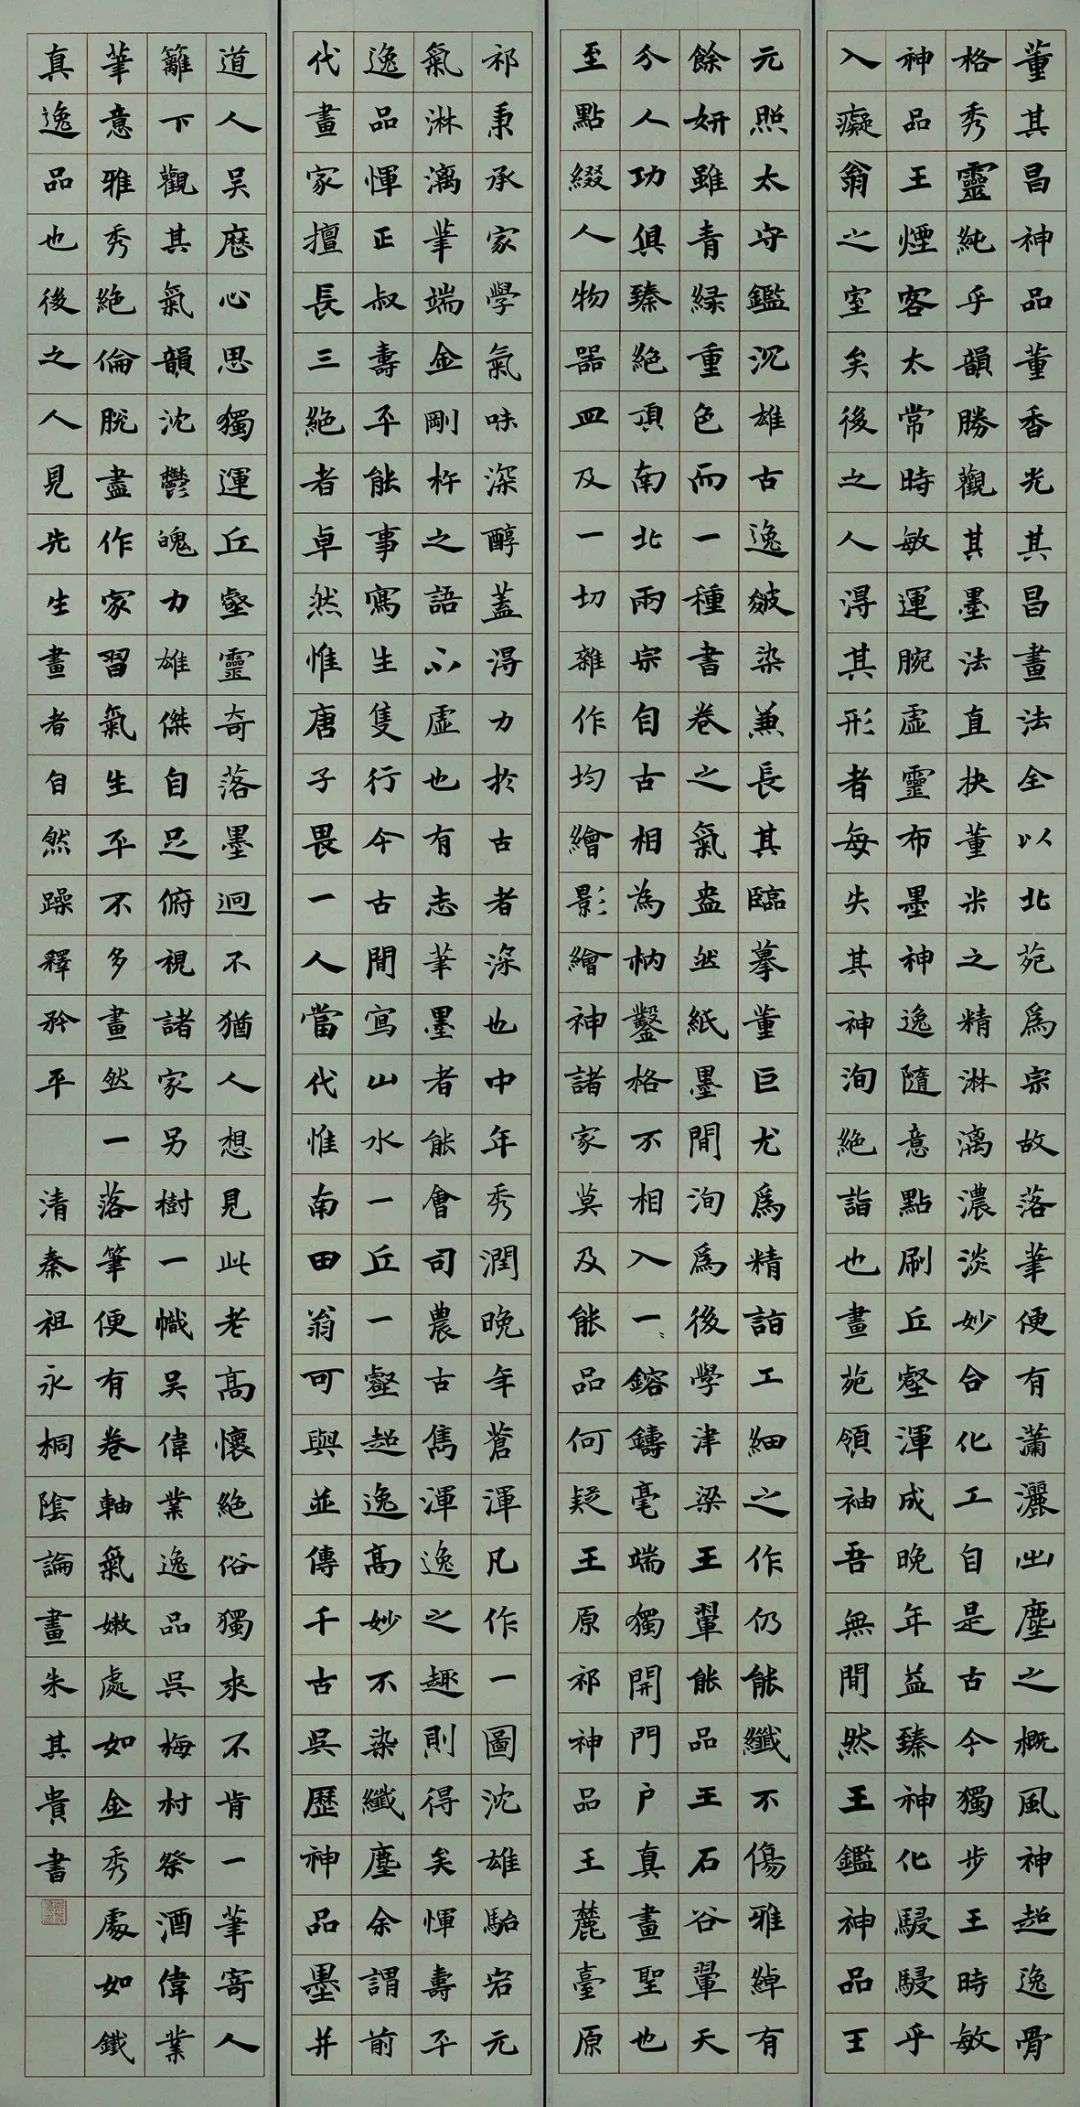 董其昌神品董香光其昌畫法全以北苑為宗故落筆便有瀟灑出塵之概風神超逸骨
格秀靈純乎韻勝觀其墨法直抉董米之精淋漓濃淡妙合化工自是古今獨步王時敏
神品王煙客太常時敏運腕虛靈布墨神逸隨意點刷丘壑渾成晚年益臻神化駸駸乎
入癡翁之室矣後之人得其形者每失其神洵絕詣也畫苑領袖吾無間然王鑑神品王
元照太守鑑沉雄古逸皴染兼長其臨摹董巨尤為精詣工細之作仍能纖不傷雅綽有
餘妍雖青綠重色而一種書卷之氣盎然紙墨間洵為後學津梁王翬能品王石谷翬天
分人功俱臻絕頂南北兩宗自古相為枘鑿格不相入一鎔鑄毫端獨開門戶真畫聖也
至點綴人物器皿及一切雜作均繪影繪神諸家莫及能品何疑王原祁神品王麓臺原
祁秉承家學氣味深醇蓋得力於古者深也中年秀潤晚年蒼渾凡作一圖沈雄駘宕元
氣淋漓筆端金剛杵之語不虛也有志筆墨者能會司農古雋渾逸之趣則得矣惲壽平
逸品惲正叔壽平能事寫生隻行今古間寫山水一丘一壑超逸高妙不染纖塵余謂前
代畫家擅長三絕者卓然惟唐子畏一人當代惟南田翁可與並傳千古吳歷神品墨井
道人吳歷心思獨運丘壑靈奇落墨迥不猶人想見此老高懷絕俗獨來不肯一筆寄人
籬下觀其氣韻沈鬱魄力雄傑自足俯視諸家另樹一幟吳偉業逸品吳梅村祭酒偉業
筆意雅秀絕倫脫盡作家習氣生平不多畫然一落筆便有卷軸氣嫩處如金秀處如鐵
真逸品也後之人見先生畫者自然躁釋矜平 清秦祖永桐陰論畫朱其貴書